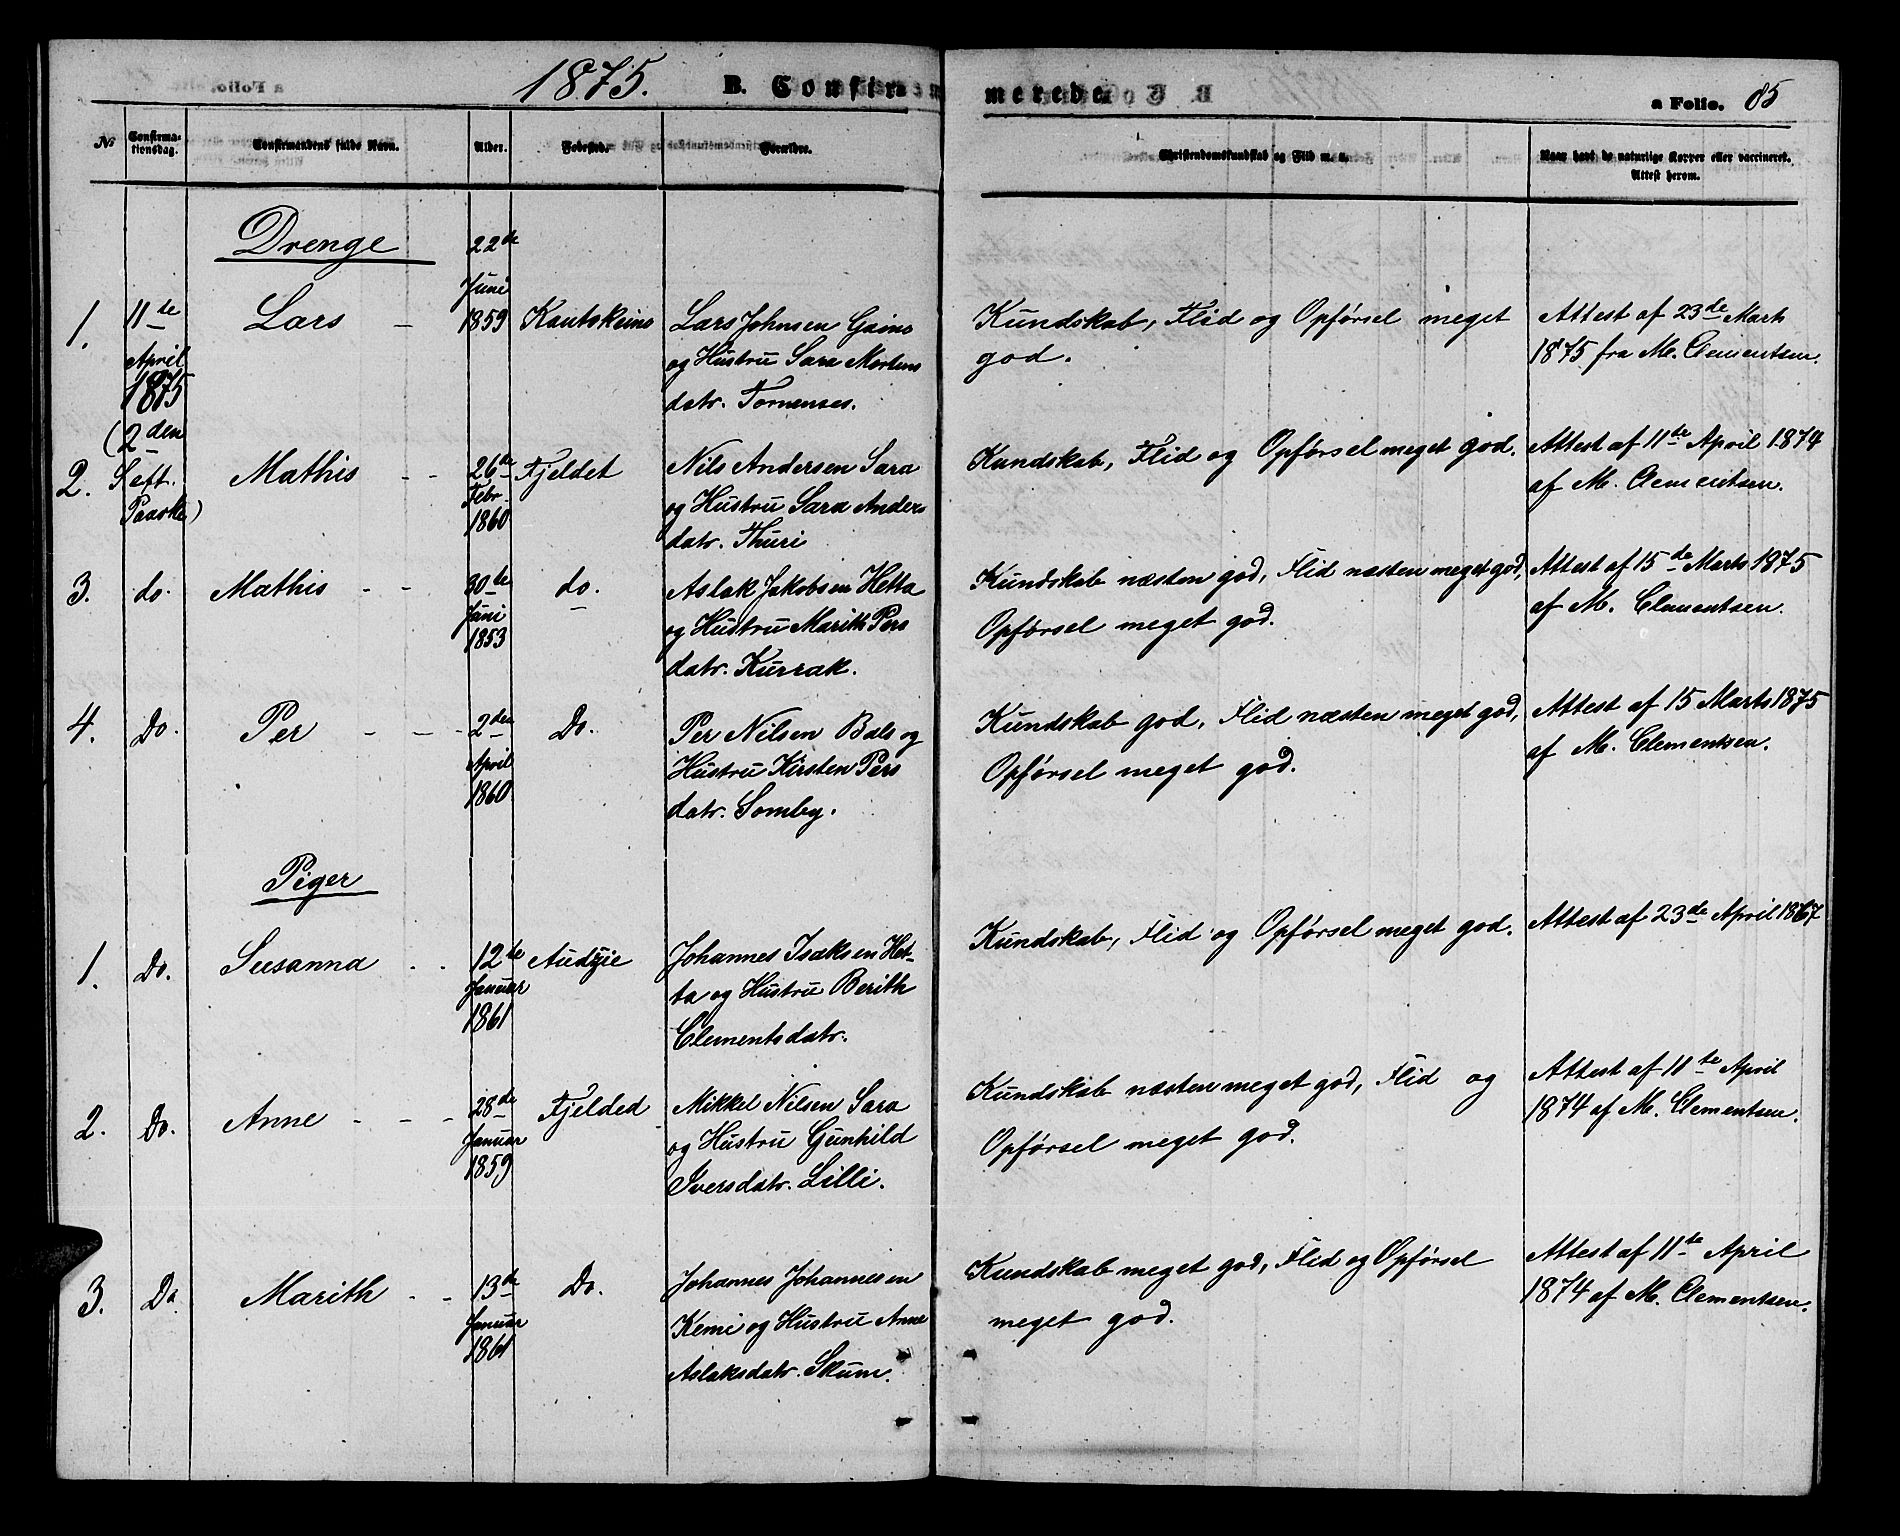 1875. B. Confirmerede a Folio. 85
No Confirmationsdag. Confirmandens fulde Navn. Alder. Fødested. Forældre. Christendomskundskab og Flid m. v. Naar havt de naturlige Kopper eller vaccineret. Attest herom.
Drenge
1. 11te April 1875 (2den Søndag Paaske) Lars 22de Juni 1859 Kautokeino
Lars Johnsen Gaino
og Hustru Sara Mortens
datr. Tornenses.
Kundskab, Flid og Opførsel meget
god.
Attest af 23de Marts
1875 fra M. Clementsen.
2. Mathis 26de Febr. 1860 Fjeldet
Nils Andersen Sara
og Hustru Sara Anders
datr. Thuri
Kundskab, Flid og Opførsel meget god.
Attest af 11te April 1874
af M. Clementsen.
3. do. Mathis 30te Juni 1853 do.
Aslak Jakobsen Hetta
og Hustru Marith Pers
datr. Kurrak.
Kundskab næsten god, Flid næsten meget god,
Opførsel meget god.
Attest af 15de Marts 1875
af M. Clementsen.
4. Do. Per 2den April 1860 Do.
Per Nilsen Bals og
Hustru Kirsten Pers
datr. Somby.
Kundskab god, Flid næsten meget god,
Opførsel meget god.
Attest af 15 Marts 1875
af M. Clementsen.
Piger
1. Do. Susanna 12te Januar 1861 Audsjie
Johannes Isaksen Het-
ta og Hustru Berith
Clementsdatr.
Kundskab, Flid og Opførsel meget god.
Attest af 23de April 1867
2. Do. Anne 28de Januar 1859 Fjelded
Mikkel Nilsen Sara
og Hustru Gunhild
Iversdatr. Lilli.
Kundskab næsten meget god, Flid og
Opførsel meget god.
Attest af 11te April
1874 af M. Clementsen.
3. Do Marith 13de Januar 1861 Do.
Johannes Johannesen
Kemi og Hustru Anne
Aslaksdatr. Skum.
Kundskab meget god, Flid og Opførsel
meget god.
Attest af 11te April
1874 af M. Clementsen.